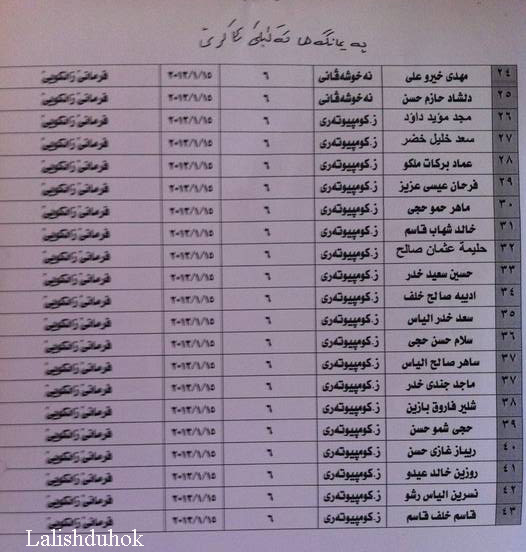 ٢٤ مهدى خيرو على نەخوشەڤانى ٦ ٢٠١٢/١/١٥ فرمانێ زانكويێ
٢٥ دلشاد حازم حسن نەخوشەڤانى ٦ ٢٠١٢/١/١٥ فرمانێ زانكويێ
٢٦ مجد مؤيد داؤد ز.كومپيوتەرى ٦ ٢٠١٢/١/١٥ فرمانێ زانكويێ
٢٧ سعد خليل خضر ز.كومپيوتەرى ٦ ٢٠١٢/١/١٥ فرمانێ زانكويێ
٢٨ عماد بركات ملكو ز.كومپيوتەرى ٦ ٢٠١٢/١/١٥ فرمانێ زانكويێ
٢٩ فرحان عيسى عزيز ز.كومپيوتەرى ٦ ٢٠١٢/١/١٥ فرمانێ زانكويێ
٣٠ ماهر حمو حجى ز.كومپيوتەرى ٦ ٢٠١٢/١/١٥ فرمانێ زانكويێ
٣١ خالد شهاب قاسم ز.كومپيوتەرى ٦ ٢٠١٢/١/١٥ فرمانێ زانكويێ
٣٢ حليمة عثمان صالح ز.كومپيوتەرى ٦ ٢٠١٢/١/١٥ فرمانێ زانكويێ
٣٣ حسين سعيد خدر ز.كومپيوتەرى ٦ ٢٠١٢/١/١٥ فرمانێ زانكويێ
٣٤ اديبه صالح خلف ز.كومپيوتەرى ٦ ٢٠١٢/١/١٥ فرمانێ زانكويێ
٣٥ سعد خدر الياس ز.كومپيوتەرى ٦ ٢٠١٢/١/١٥ فرمانێ زانكويێ
٣٦ سلام حسن حجى ز.كومپيوتەرى ٦ ٢٠١٢/١/١٥ فرمانێ زانكويێ
٣٧ ساهر صالح الياس ز.كومپيوتەرى ٦ ٢٠١٢/١/١٥ فرمانێ زانكويێ
٣٧ ماجد جندى خدر ز.كومپيوتەرى ٦ ٢٠١٢/١/١٥ فرمانێ زانكويێ
٣٨ شلير فاروق بازين ز.كومپيوتەرى ٦ ٢٠١٢/١/١٥ فرمانێ زانكويێ
٣٩ حجى شمو حسن ز.كومپيوتەرى ٦ ٢٠١٢/١/١٥ فرمانێ زانكويێ
٤٠ ريباز غازى حسن ز.كومپيوتەرى ٦ ٢٠١٢/١/١٥ فرمانێ زانكويێ
٤١ روزين خالد عيدو ز.كومپيوتەرى ٦ ٢٠١٢/١/١٥ فرمانێ زانكويێ
٤٢ نسرين الياس رشو ز.كومپيوتەرى ٦ ٢٠١٢/١/١٥ فرمانێ زانكويێ
٤٣ قاسم خلف قاسم ز.كومپيوتەرى ٦ ٢٠١٢/١/١٥ فرمانێ زانكويێ
Lalishduhok